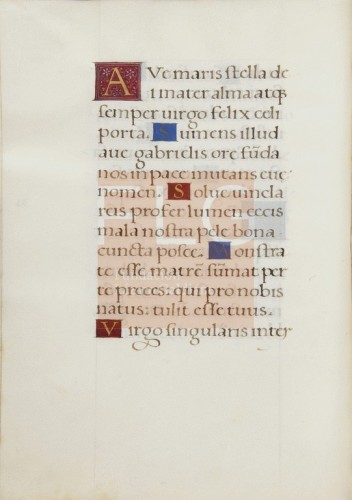 AVe maris stella de
i mater alma atqȝ
semper virgo felix celi
porta. Sumens illud
aue gabrielis ore fūda
nos in pace mutans eue
nomen. Solue vincla
reis profer lumen cecis
mala nostra pele bona
cuncta posce. Monstra
te esse matrē sūmat per
te preces: qui pro nobis
natus: tulit esse tuus.
Virgo singularis inter
FLG